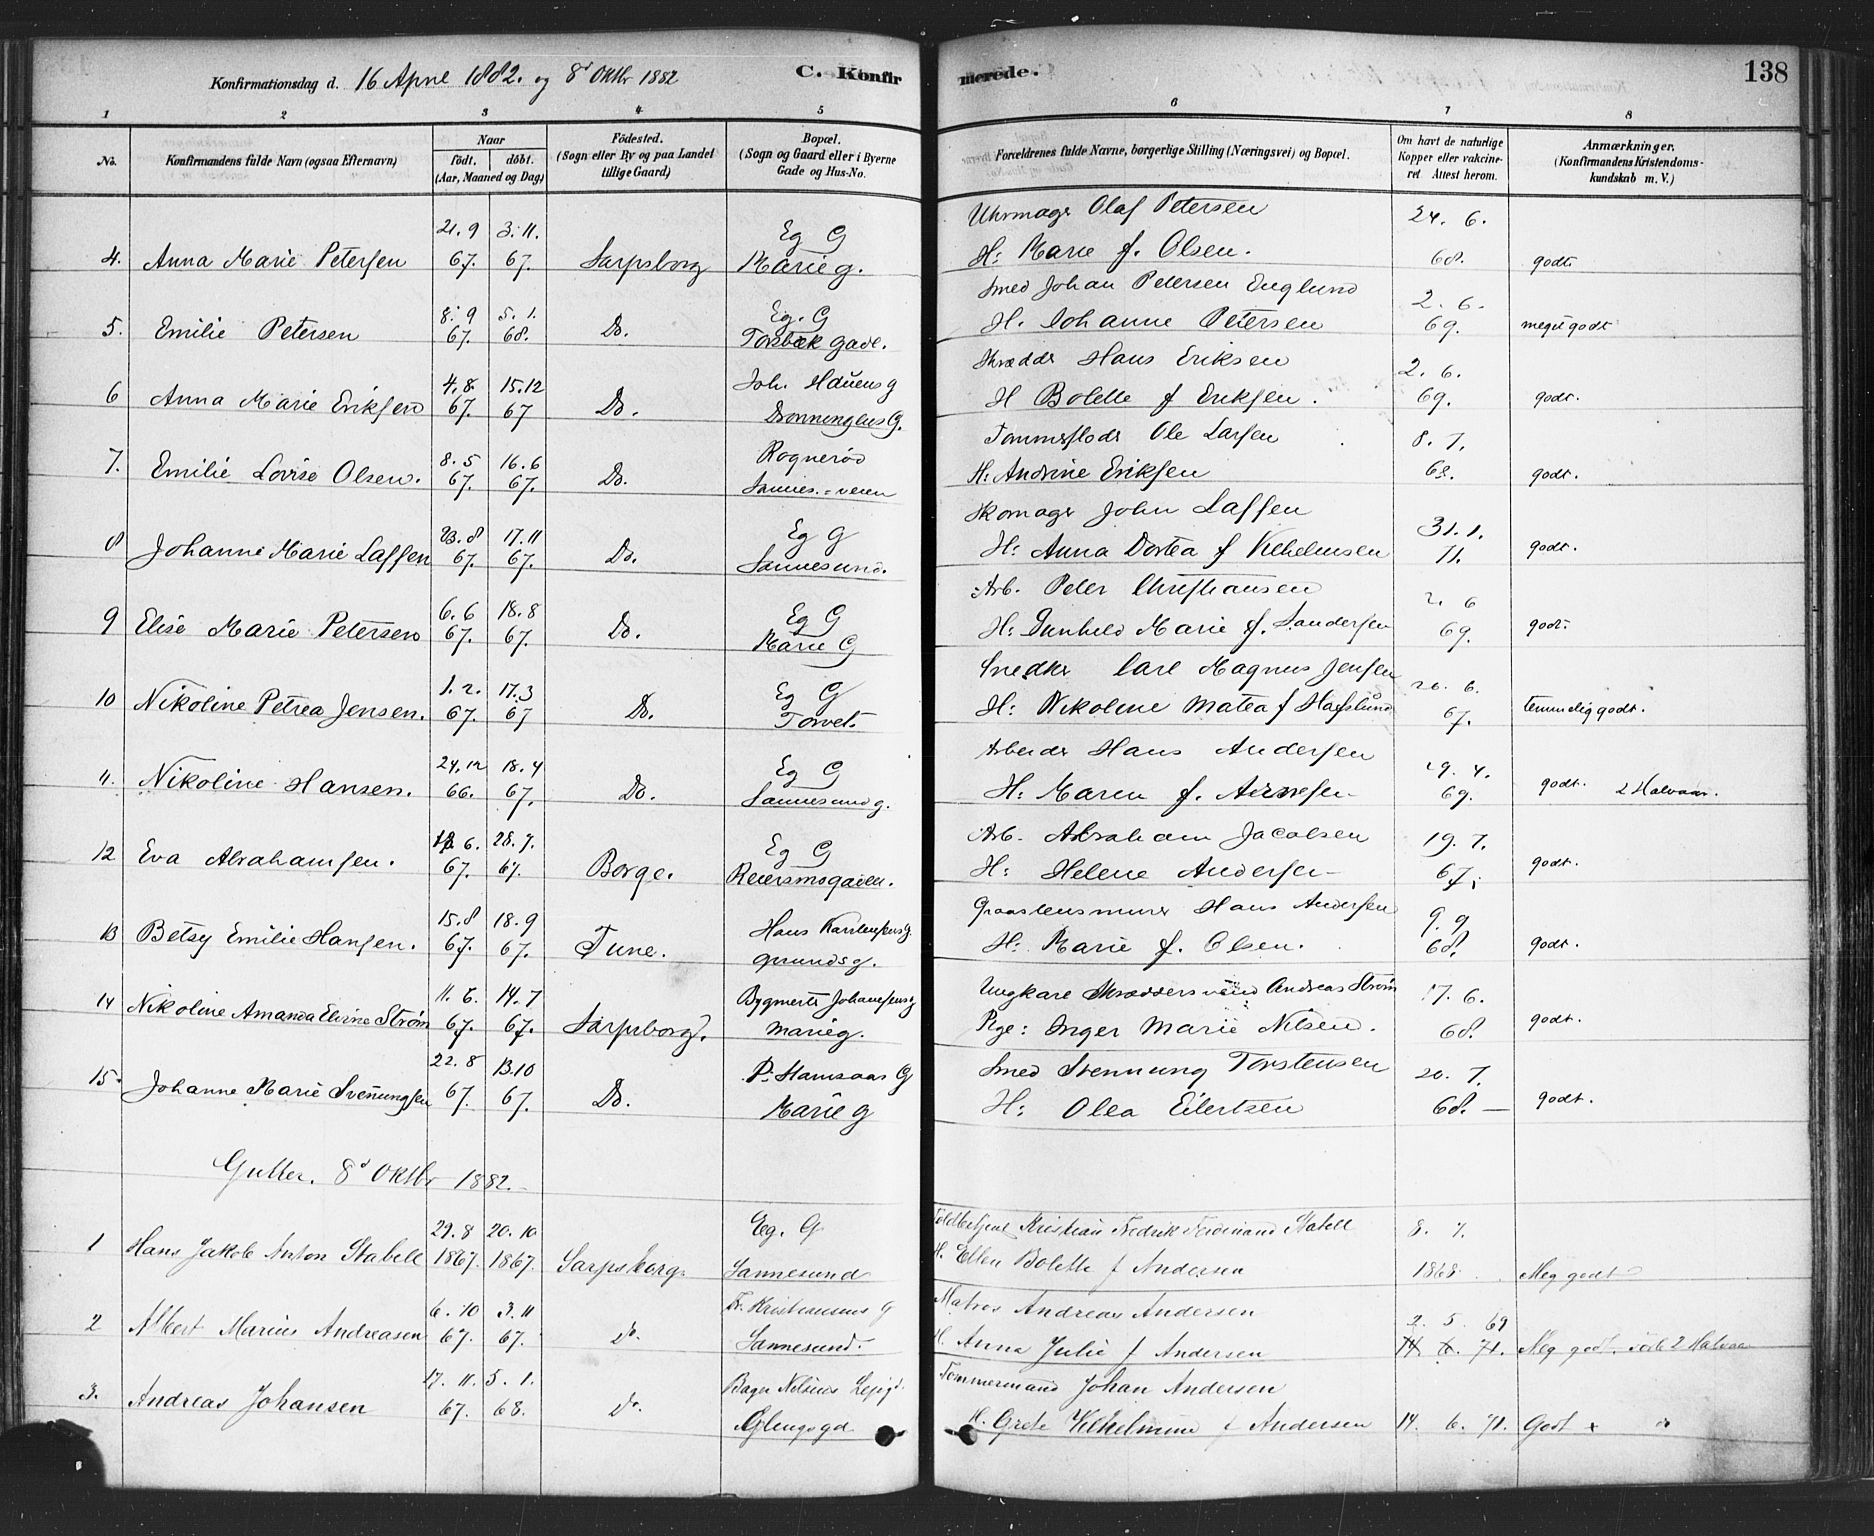 Konfirmationsdag d. 16 April 1882. og 8d Oktbr 1882 C. Konfirmerede. 138
1 2 3 4 5 6 7 8
No. Konfirmandens fulde Navn (ogsaa Efternavn) Naar Födt. döbt. (Aar, Maaned og Dag) Födested. (Sogn eller By og paa Landet tillige Gaard) Bopæl. (Sogn og Gaard eller i Byerne Gade og Hus-No. Forældrenes fulde Navne, borgerlige Stilling (Næringsvei) og Bopæl. Om havt de naturlige Kopper eller vakcineret Attest herom. Anmærkninger. (Konfirmandens Kristendomskundskab m. V.)
21. 9 3. 11. Eg G Uhrmager Olaf Petersen 24. 6.
4. Anna Marie Petersen 67. 67. Sarpsborg Marieg. H: Marie f. Olsen. 68. godt.
8. 9 5. 1. Eg. G Smed Johan Petersen Englund 2. 6.
5. Emilie Petersen 67. 68. Do. Torsbæk gade. H. Johanne Petersen 69. meget godt
4. 8. 15. 12 Joh. g Skrædder Hans Eriksen 2. 6.
6 Anna Marie Eriksen 67. 67 Do. Dronningens G. H Bolette f Eriksen. 69. godt.
8. 5 16. 6 Rognerød Tømmerfløder Ole Larsen 8. 7.
7. Emilie Lovise Olsen. 67. 67. Do. Sannes=veien H: Andrine Eriksen 68. godt.
23. 8 17. 11 Eg G Skomager John Laffen 31. 1.
8 Johanne Marie Laffen 67. 67. Do. Sannesund. H: Anna Dortea f Vilhelmsen 71. godt.
6. 6 18. 8 Eg G Arb. Peter Christiansen 2. 6
9 Elise Marie Petersen 67. 67. Do. Marie G H: Gunhild Marie f. Sandersen 69. godt.
1. 2. 17. 3 Eg G Snedker Carl Magnus Jensen 26. 6.
10 Nikoline Petrea Jensen. 67. 67 Do. Torvet H: Nikoline Matea f Hafslund 67. temmelig godt.
24. 12 18. 4 Eg G Arbeider Hans Andersen 29. 4.
11. Nikoline Hansen. 66. 67. Do. Sannesund g. H: Maren f. 69. godt. 2 Halvaar.
6. 28. 7. Eg G Arb. Abraham Jacobsen 19. 7.
12 Eva Abrahamsen. 67. 67. Borge. Reiersmogaden. H: Helene Andersen 67. godt.
15. 8 18. 9 Hans Karlensens g. Graastensmurer Hans Andersen 9. 9
13 Betsy Emilie Hansen. 67. 67. Tune. grundsg. H: Marie f. Olsen. 68. godt.
11. 6. 14. 7 Bygmester Johansens g Ungkarl Skræddersvend Andreas Strøm 17. 6.
14 Nikoline Amanda Elvine Strøm 67. 67. Sarpsborg. marieg. Pige: Inger Marie Nilsen. 68. godt.
22. 8 13. 10 P. Hamsaas G Smed Svennung Torstensen 20. 7.
15. Johanne Marie Svenungsen 67. 67. Do. Marie g H: Olea Eilertsen 68. — godt.
Gutter. 8d Oktbr 1882.
29. 8 20. 10 Eg. G Toldbetjent Kristian Fredrik Ferdinand Stabell 8. 7.
1 Hans Jakob Anton Stabell 1867. 1867. Sarpsborg. Sannesund H. Ellen Bolette f Andersen 1868 Meg godt
6. 10 3. 11 Fr. Kristiansens G Matros Andreas Andersen 2. 5. 69
2 Albert Marius Andreasen 67. 67. do. Sannesund. H. Anna Julie f Andersen 14. 6. 71. Meg godt. 2 Halvaar
17. 11. 5. 1. Bager Nilsens Tømmermand Johan Andersen
3. Andreas Johansen 67. 68. do. Glengsgd H. Grete Vilhelmine f Andersen 14. 6. 71. Godt